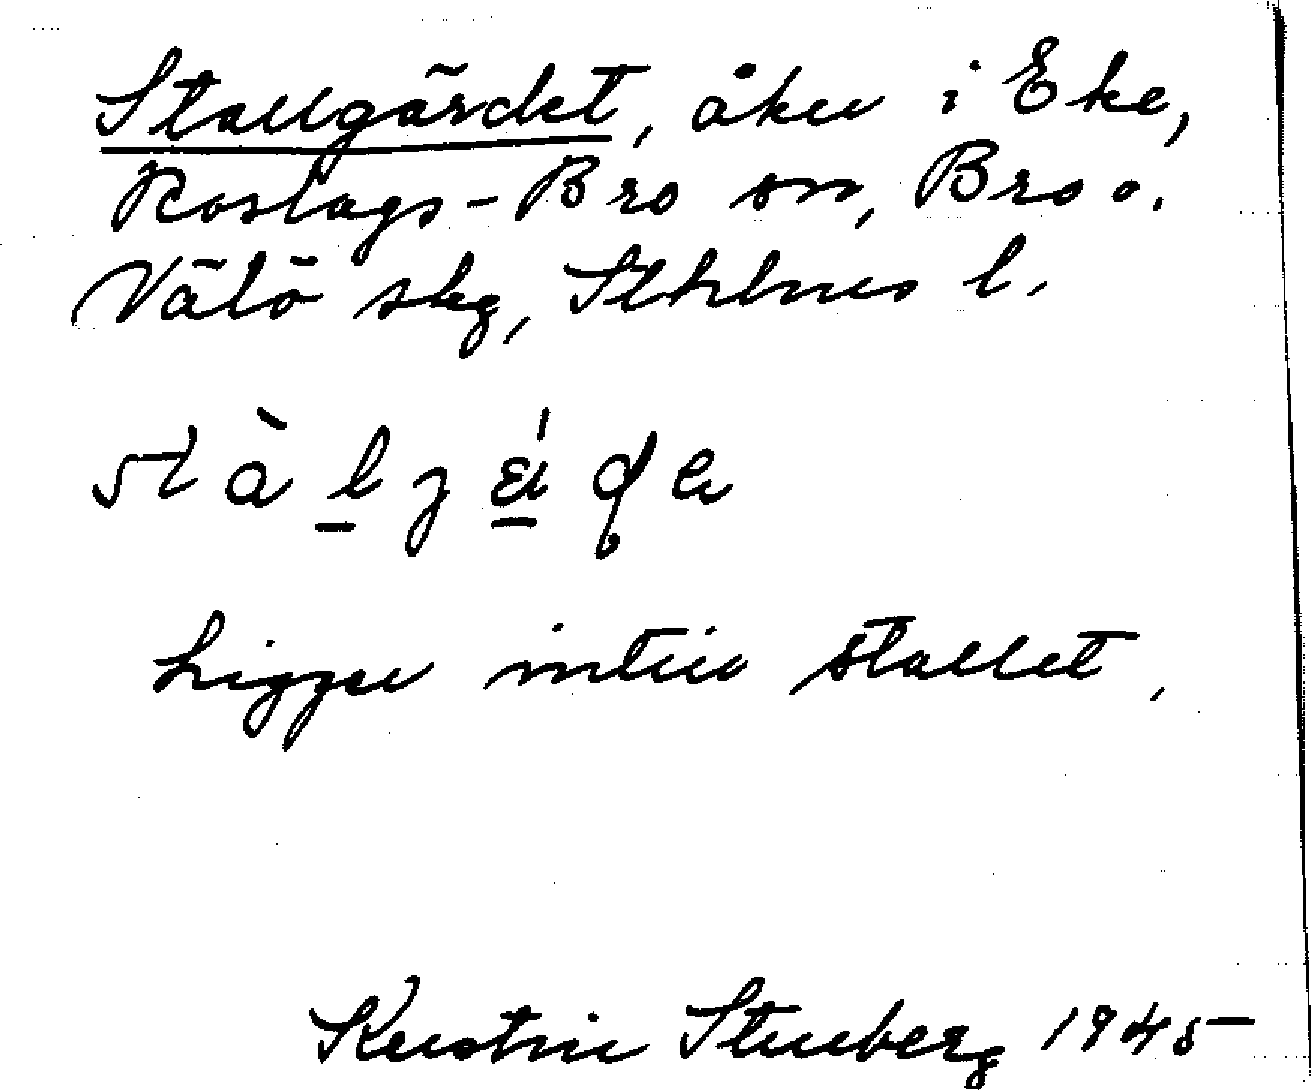 Stallgärdet, åker i Eke,
Roslags-Bro sn, Bro o.
Vätö skg, Sthlms l.
Ligger intill stallet.
Kerstin 1945